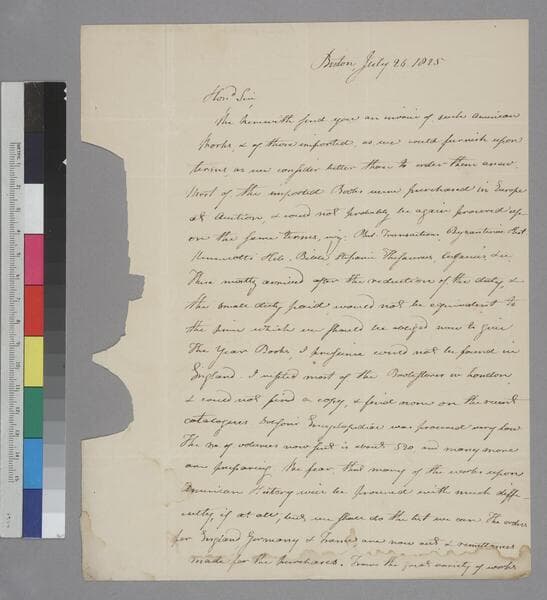 Boston, July 26. 1825
Hond. Sir,
We herewith send you an invoice of such American
Works, & of those imported, as we could furnish upon
terms, as we consider better than to order them anew.
Most of the imported Books were purchased in Europe
at Auction, & could not probably be again procured up-
on the same terms, viz. Phil. Transactions, Byzantinae Hist
Kennicotti Heb. Biblia, Stephani Thesaurus, &c.
These mostly arrived after the reduction of the duty, &
the small duty paid would not be equivalent to
the sum which we should be obliged now to give
The Year Books, I presume could not be found in
England. I visited most of the Bookstores in London
& could not find a copy, & find none on the recent
catalogues. Encyclopedia was procured very low
The no. of volumes now sent is about 530 and many more
are preparing. We fear that many of the works upon
American History will be procured with much diffi-
culty, if at all, but we shall do the best we can. The orders
for England Germany & France, are now out & remittances
made for the purchases. From the great variety of works